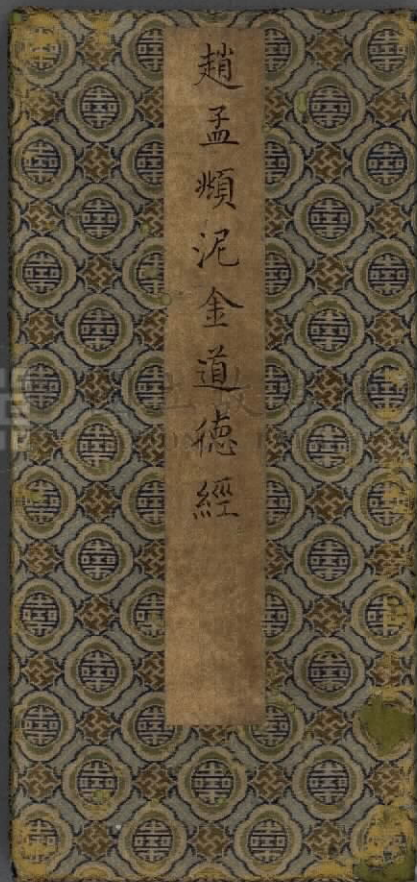 趙孟頫泥金道徳經